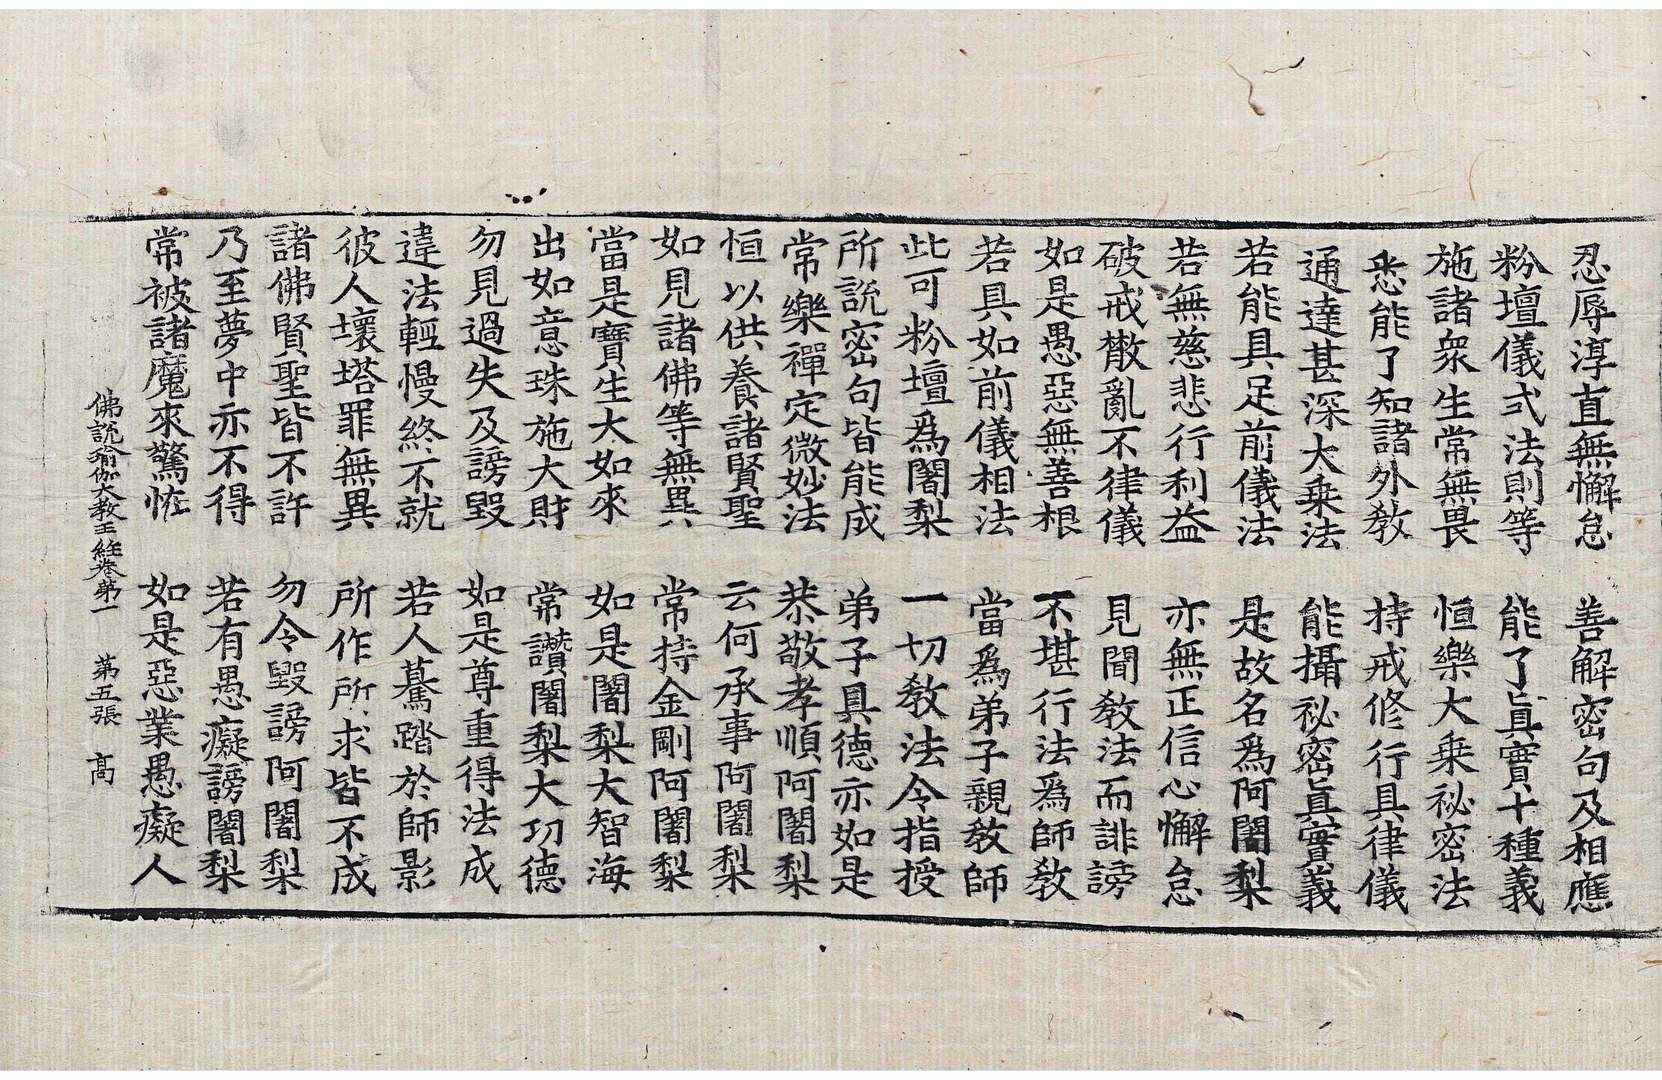 忍辱淳直無懈怠　善解密句及相應
粉壇儀式法則等　能了眞實十種義
施諸衆生常無畏　恒樂大乗祕密法
悉能了知諸外教　持戒修行具律儀
通達甚深大乗法　能攝祕密眞實義
若能具足前儀法　是故名爲阿闍梨
若無慈悲行利益　亦無正信心懈怠
破戒散亂不律儀　見聞教法而誹謗
如是愚惡無善根　不堪行法爲師教
若具如前儀相法　當爲弟子親教師
此可粉壇爲闍梨　一切教法令指授
所説密句皆能成　弟子具德亦如是
常樂禪定微妙法　恭敬孝順阿闍梨
恒以供養諸賢聖　云何承事阿闍梨
如見諸佛等無異　常持金剛阿闍梨
當是寶生大如來　如是闍梨大智海
出如意珠施大財　常讚闍梨大功德
勿見過失及謗毀　如是尊重得法成
違法輕慢終不就　若人驀踏於師影
彼人壞塔罪無異　所作所求皆不成
諸佛賢聖皆不許　勿令毀謗阿闍梨
乃至夢中亦不得　若有愚癡謗闍梨
常被諸魔來驚恠　如是惡業愚癡人
佛説瑜伽大教王經卷第一　第五張　髙